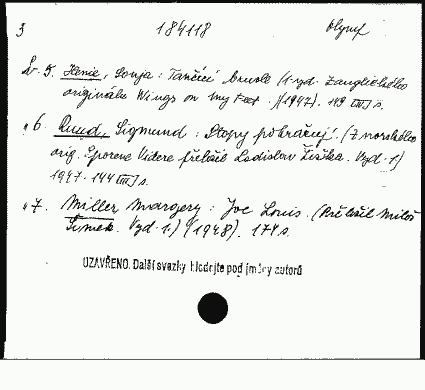 3 184118 Olymp
Sv. 5. Henie, Sonja: Tančící brusle (1. vyd. Z anglického
originálu Wings on my Feet. (1947). 119 [III] s.
„ 6. Ruud, Sigmund: Stopy pokračují. (Z norského
orig. Sporene Videre přeložil Ladislav Žiška. Vyd. 1)
1947. 144 [III] s.
„ 7. Miller Margery: Joe Louis. (Přeložil Miloš
Šimek. Vyd. 1.) (1948). 174 s.
UZAVŘENO. Další svazky hledejte pod jmény autorů